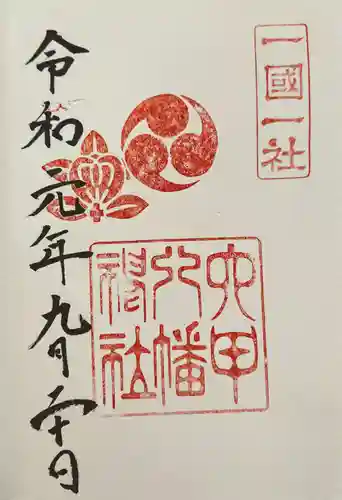 一國一社
六甲
八幡
神社
令和元年九月二十日